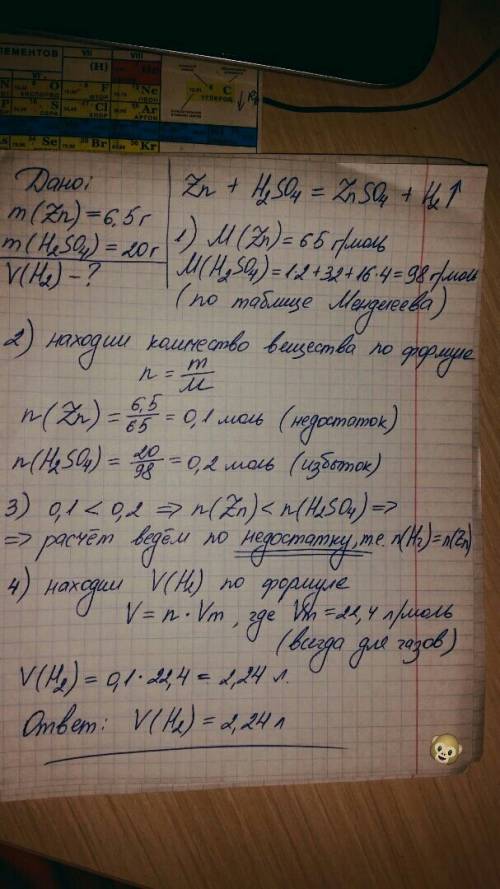 ЛЕМЕНТОВ
VI
VII
VIII
(H)
He
N
O
F
Ne
НЕОН
C
УГЛЕРОД
P
S
Cl
Ar
АРГОН
As
Se
Br
Kr
Дано:
m(Zn) = 6,5 г
m(H₂SO₄) = 20 г
V(H₂) - ?
Zn + H₂SO₄ = ZnSO₄ + H₂↑
1) M(Zn) = 65 г/моль
M(H₂SO₄) = 1·2+32+16·4 = 98 г/моль
(по таблице Менделеева)
2) находим количество вещества по формуле
n = m/M
n(Zn) = 6,5/65 = 0,1 моль (недостаток)
n(H₂SO₄) = 20/98 = 0,2 моль (избыток)
3) 0,1 < 0,2 => n(Zn) < n(H₂SO₄) =>
=> расчёт ведём по недостатку, т.е. n(H₂) = n(Zn)
4) находим V(H₂) по формуле
V = n · Vm, где Vm = 22,4 л/моль
(всегда для газов)
V(H₂) = 0,1 · 22,4 = 2,24 л.
Ответ: V(H₂) = 2,24 л